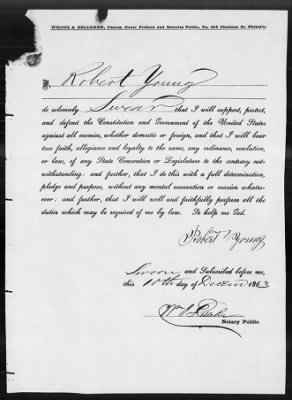 WILCOX & HELLERMAN, Custom House Brokers and Notaries Public, No. 403 Chestnut St. Philad'a.
I, Robert Young
do solemnly Swear that I will support, protect,
and defend the Constitution and Government of the United States
against all enemies, whether domestic or foreign, and that I will bear
true faith, allegiance and loyalty to the same, any ordinance, resolution,
or law, of any State Convention or Legislature to the contrary not-
withstanding: and further, that I do this with a full determination,
pledge and purpose, without any mental reservation or evasion whatso-
ever: and further, that I will well and faithfully perform all the
duties which may be required of me by law. So help me God.
Robert Young
Sworn and Subscribed before me,
this 10th day of Decem 1863
Notary Public